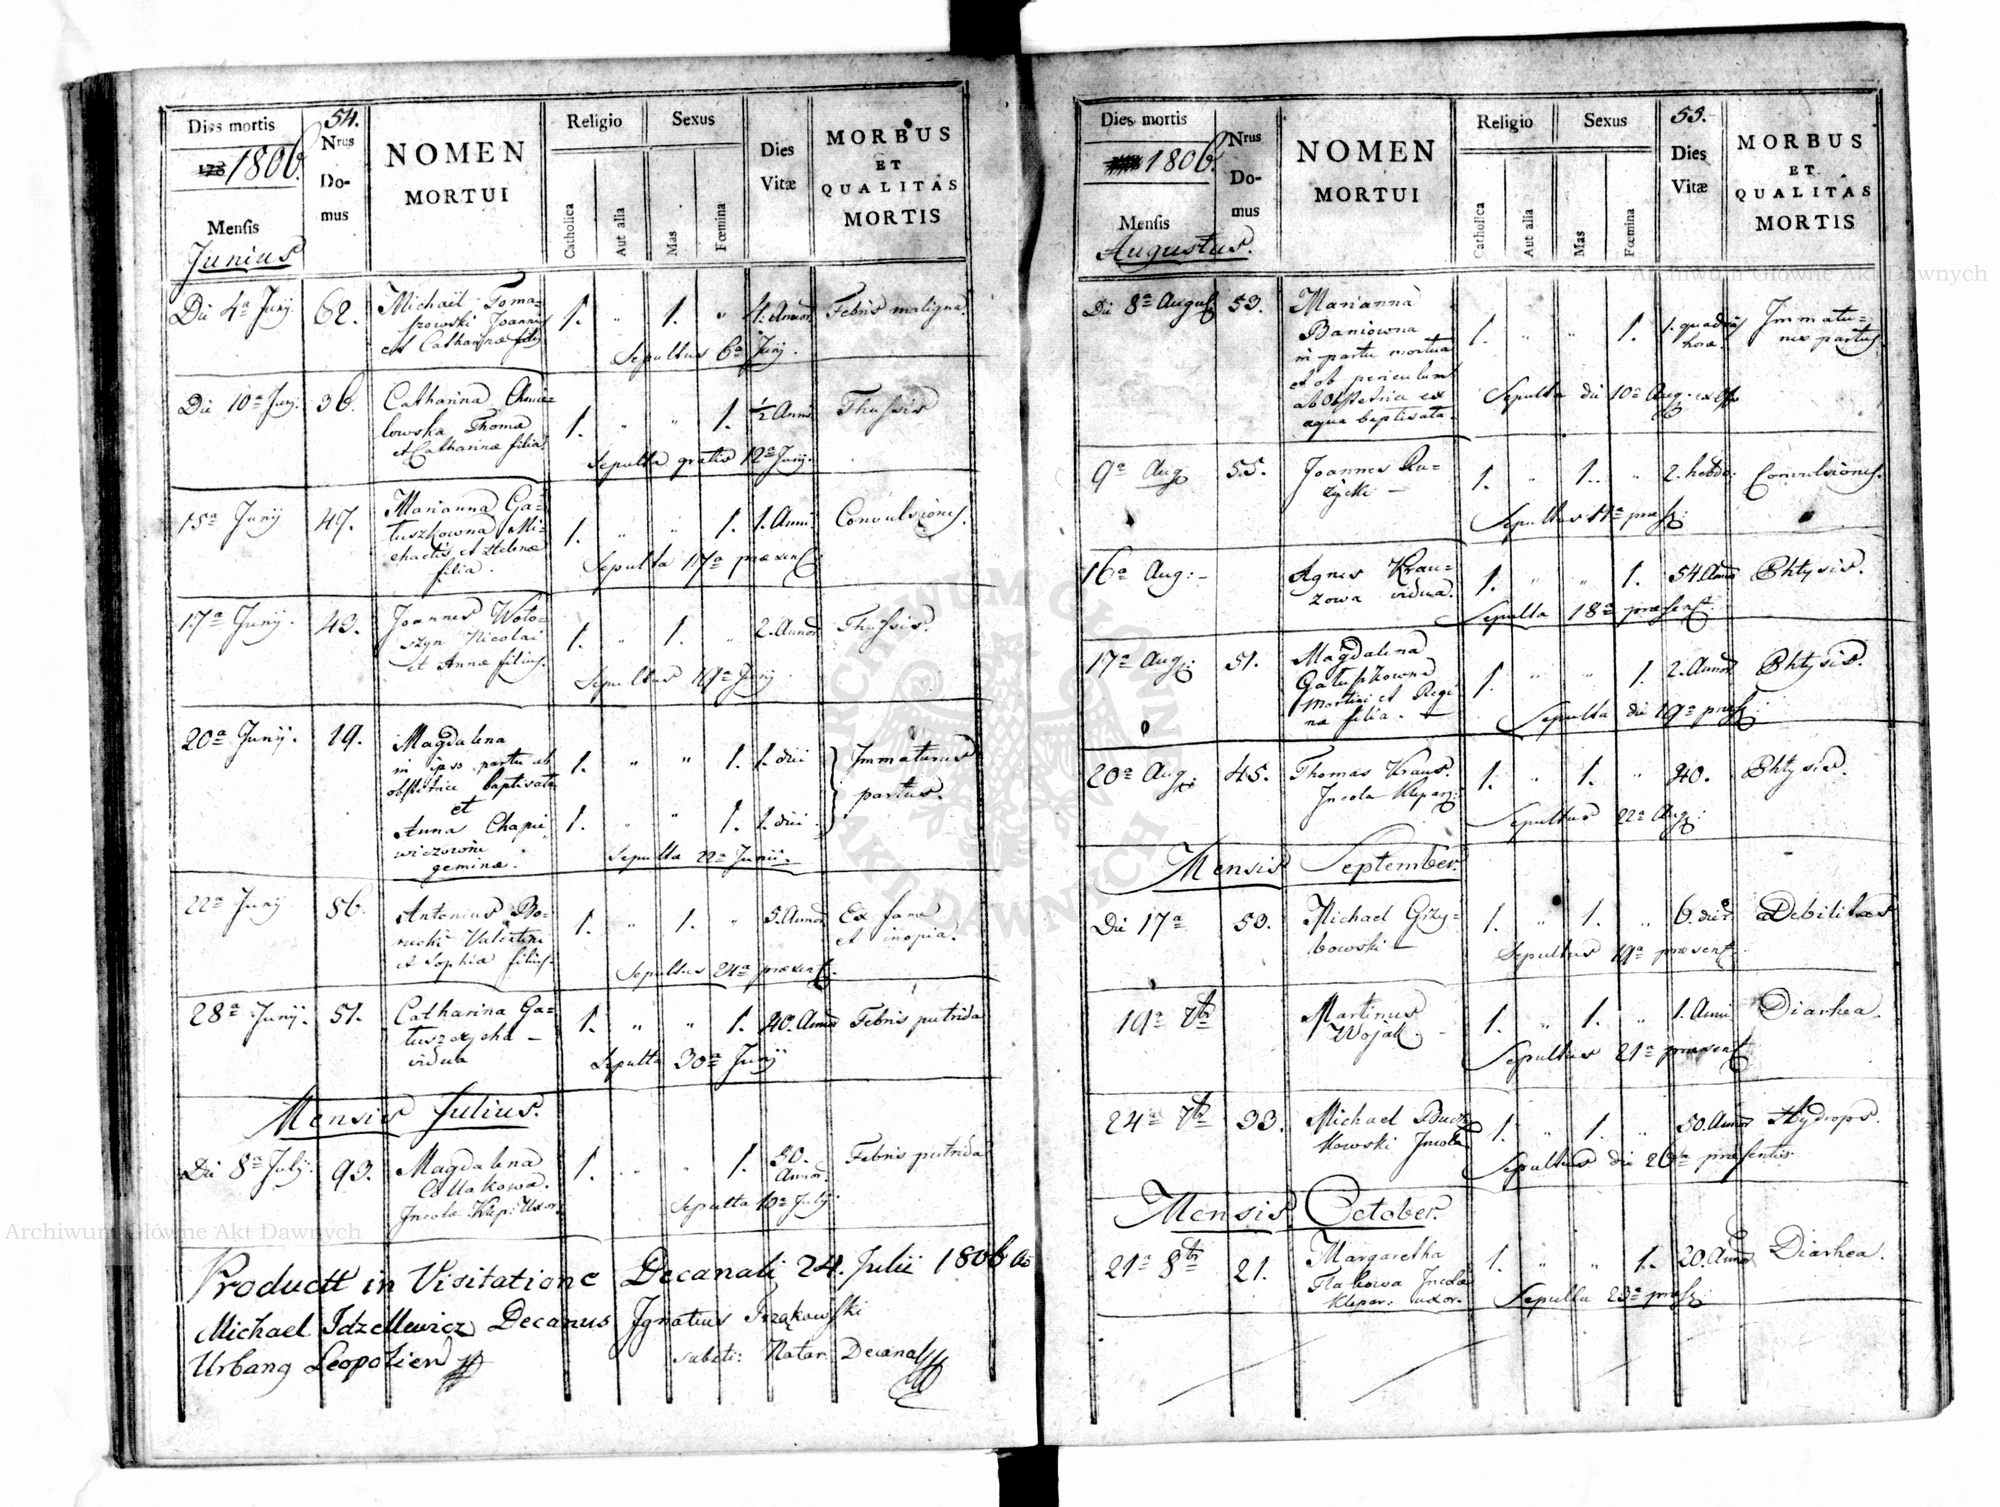 Dies mortis
1806.
Mensis
Junius
54.
Nrus
Do-
mus
NOMEN
MORTUI
Religio
Sexus
Catholica
Aut alia
Mas
Fœmina
Dies
Vitæ
MORBUS
ET
QUALITAS
MORTIS
Die 4a Junij
62.
Michaël Toma-
szowski Joannis
et Catharinæ filius
1. " 1. "
4. Annor.
Febris maligna
Sepultus 6a Junij.
Die 10a Junij.
36.
Catharina Chmie-
lowska Thomæ
et Catharinæ filia
1. " " 1.
½ Anni
Thussis
Sepulta gratis 12a Junij.
15a Junij
47.
Marianna Ga-
łuszkowna Mi-
chaelis et Helenæ
filia.
1. " " 1.
1. Anni
Convulsiones.
Sepulta 17a præsent:
17a Junij.
43.
Joannes Woło-
szyn Nicolai
et Annæ filius.
1. " 1. "
2. Annor
Thussis.
Sepultus 19a Junij
20a Junij.
19.
Magdalena
in ipso partu ab
obstetrice baptisata
et
Anna Chapu
wiczowne
geminæ.
1. " " 1. 1. diei
1. " " 1. 1. diei
Immaturus
partus.
Sepultæ 22a Junii.
22a Junij
86.
Antonius Bo-
rucki Valentini
et Sophiæ filius.
1. " 1. "
5. Annor
Ex fame
et inopia.
Sepultus 24a præsent:
28a Junij.
51.
Catharina Ga-
łuszczycha
vidua
1. " " 1.
40. Annor
Febris putrida
Sepulta 30a Junij
Mensis Julius.
Die 8a Julij.
93.
Magdalena
Incola Klep: Uxor.
1. " " 1.
50.
Annor.
Febris putrida
Sepulta 10a Julij.
Product in Visitatione Decanali 24. Julii 1806 ao
Michael Idzellewicz Decanus Ignatius Trząkowski
Urbang Leopolien substi: Notar: Decanal
Dies mortis
1806.
Mensis
Augustus.
Nrus
Do-
mus
NOMEN
MORTUI
Religio
Sexus
Catholica
Aut alia
Mas
Fœmina
55.
Dies
Vitæ
MORBUS
ET
QUALITAS
MORTIS
Die 8a August
53.
Marianna
Baniowna
in partu mortua
et ob periculum
ab obstetrice ex
aqua baptisata.
1. " " 1.
1. quadras
horæ.
Immatu-
rus partus.
Sepulta die 10a Aug:
9a Aug
55.
Joannes Ru-
życki
1. " 1. "
2. hebdo:
Convulsiones.
Sepultus 11a præs:
16a Aug:
Agnes Krau-
zowa vidua.
1. " " 1.
54. Annor
Phtysis.
Sepulta 18a præsent:
17a Aug:
51.
Magdalena
Gałuszkowna
Martini et Regi
næ filia.
1. " " 1.
2. Annor
Phtysis.
Sepulta die 19a præs:
20a Aug:
45.
Thomas Kraus.
Incola Klepar:
1. " 1. "
40.
Phtysis.
Sepultus 22a Aug:
Mensis September.
Die 17a
53.
Michael Grzy-
bowski
1. " 1. "
6. dier
Debilitas
Sepultus 19a præsent:
19a 7br
Martinus
Wojak.
1. " 1. "
1. Anni
Diarhea.
Sepultus 21a præsent
24a 7br
33.
Michael Bucz-
kowski Incola
1. " 1. "
50. Annor
Hydrops.
Sepultus die 26a præsentis
Mensis October.
21a 8br
21.
Margaretha
Incolæ
Klepar: uxor.
1. " " 1.
20. Annor
Diarhea.
Sepulta 23a præs:
Archiwum Główne Akt Dawnych
Archiwum Główne Akt Dawnych
ARCHIWUM GŁÓWNE
AKT DAWNYCH